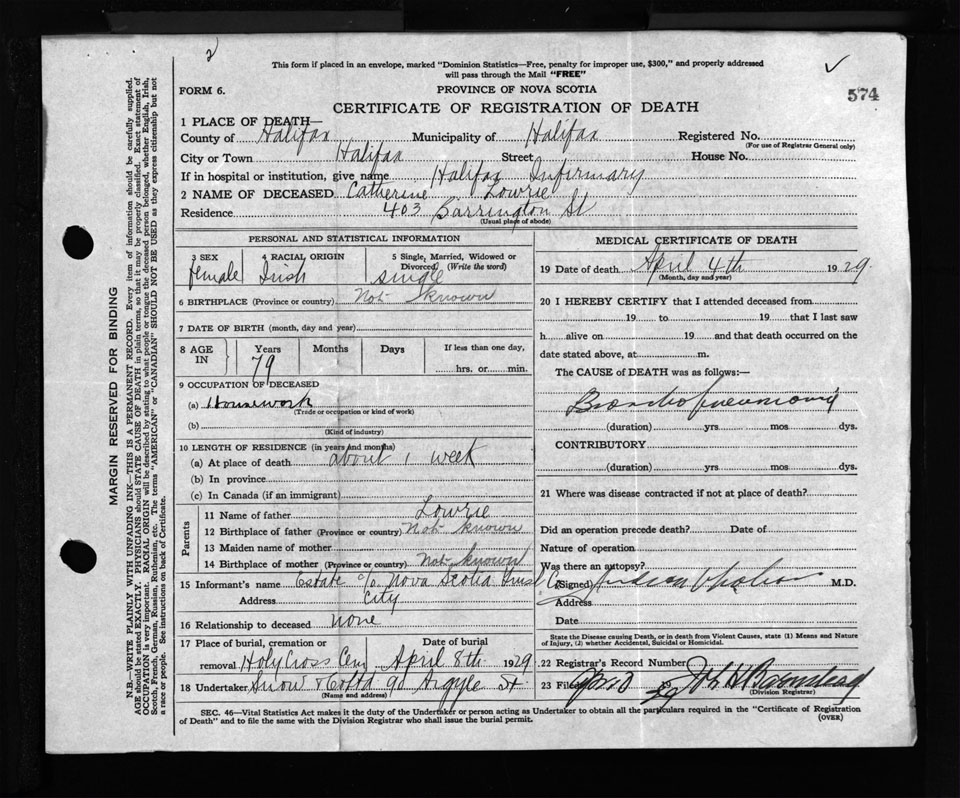 2
This form if placed in an envelope, marked "Dominion Statistics—Free, penalty for improper use, $300," and properly addressed
will pass through the Mail "FREE"
FORM 6.
PROVINCE OF NOVA SCOTIA
574
CERTIFICATE OF REGISTRATION OF DEATH
1 PLACE OF DEATH—
County of Halifax Municipality of Halifax Registered No.
(For use of Registrar General only)
City or Town Halifax Street House No.
If in hospital or institution, give name Halifax Infirmary
2 NAME OF DECEASED Catherine Lowrie
Residence 403 Barrington St
(Usual place of abode)
PERSONAL AND STATISTICAL INFORMATION
3 SEX 4 RACIAL ORIGIN 5 Single, Married, Widowed or
Divorced (Write the word)
female Irish single
6 BIRTHPLACE (Province or country) Not known
7 DATE OF BIRTH (month, day and year)
8 AGE IN Years Months Days If less than one day,
79 hrs. or min.
9 OCCUPATION OF DECEASED
(a) Housework
(Trade or occupation or kind of work)
(b)
(Kind of industry)
10 LENGTH OF RESIDENCE (in years and months)
(a) At place of death about 1 week
(b) In province
(c) In Canada (if an immigrant)
Parents
11 Name of father Lowrie
12 Birthplace of father (Province or country) Not known
13 Maiden name of mother
14 Birthplace of mother (Province or country) Not known
15 Informant's name Estate c/o Nova Scotia Trust Co
Address City
16 Relationship to deceased none
17 Place of burial, cremation or Date of burial
removal Holy Cross Cem April 8th 1929
18 Undertaker Snow & Co Ltd 90 Argyle St
(Name and address)
MEDICAL CERTIFICATE OF DEATH
19 Date of death April 4th 1929
(Month, day and year)
20 I HEREBY CERTIFY that I attended deceased from
19 to 19 that I last saw
h alive on 19 and that death occurred on the
date stated above, at m.
The CAUSE of DEATH was as follows:—
Broncho pneumonia
(duration) yrs mos dys.
CONTRIBUTORY
(duration) yrs mos dys.
21 Where was disease contracted if not at place of death?
Did an operation precede death? Date of
Nature of operation
Was there an autopsy?
(Signed) M.D.
Address
Date
State the Disease causing Death, or in death from Violent Causes, state (1) Means and Nature
of Injury, (2) whether Accidental, Suicidal or Homicidal.
22 Registrar's Record Number
23 Filed 19 29
(Division Registrar)
SEC. 46—Vital Statistics Act makes it the duty of the Undertaker or person acting as Undertaker to obtain all the particulars required in the "Certificate of Registration
of Death" and to file the same with the Division Registrar who shall issue the burial permit.
(OVER)
MARGIN RESERVED FOR BINDING
N.B.—WRITE PLAINLY WITH UNFADING INK—THIS IS A PERMANENT RECORD. Every item of information should be carefully supplied.
AGE should be stated EXACTLY. PHYSICIANS should STATE CAUSE OF DEATH in plain terms, so that it may be properly classified. Exact statement of
OCCUPATION is very important. RACIAL ORIGIN will be described by stating to what people or tongue the deceased person belonged, whether English, Irish,
Scotch, French, German, Russian, Ruthenian, etc. The terms "AMERICAN" or "CANADIAN" SHOULD NOT BE USED as they express citizenship but not
a race or people. See instructions on back of Certificate.